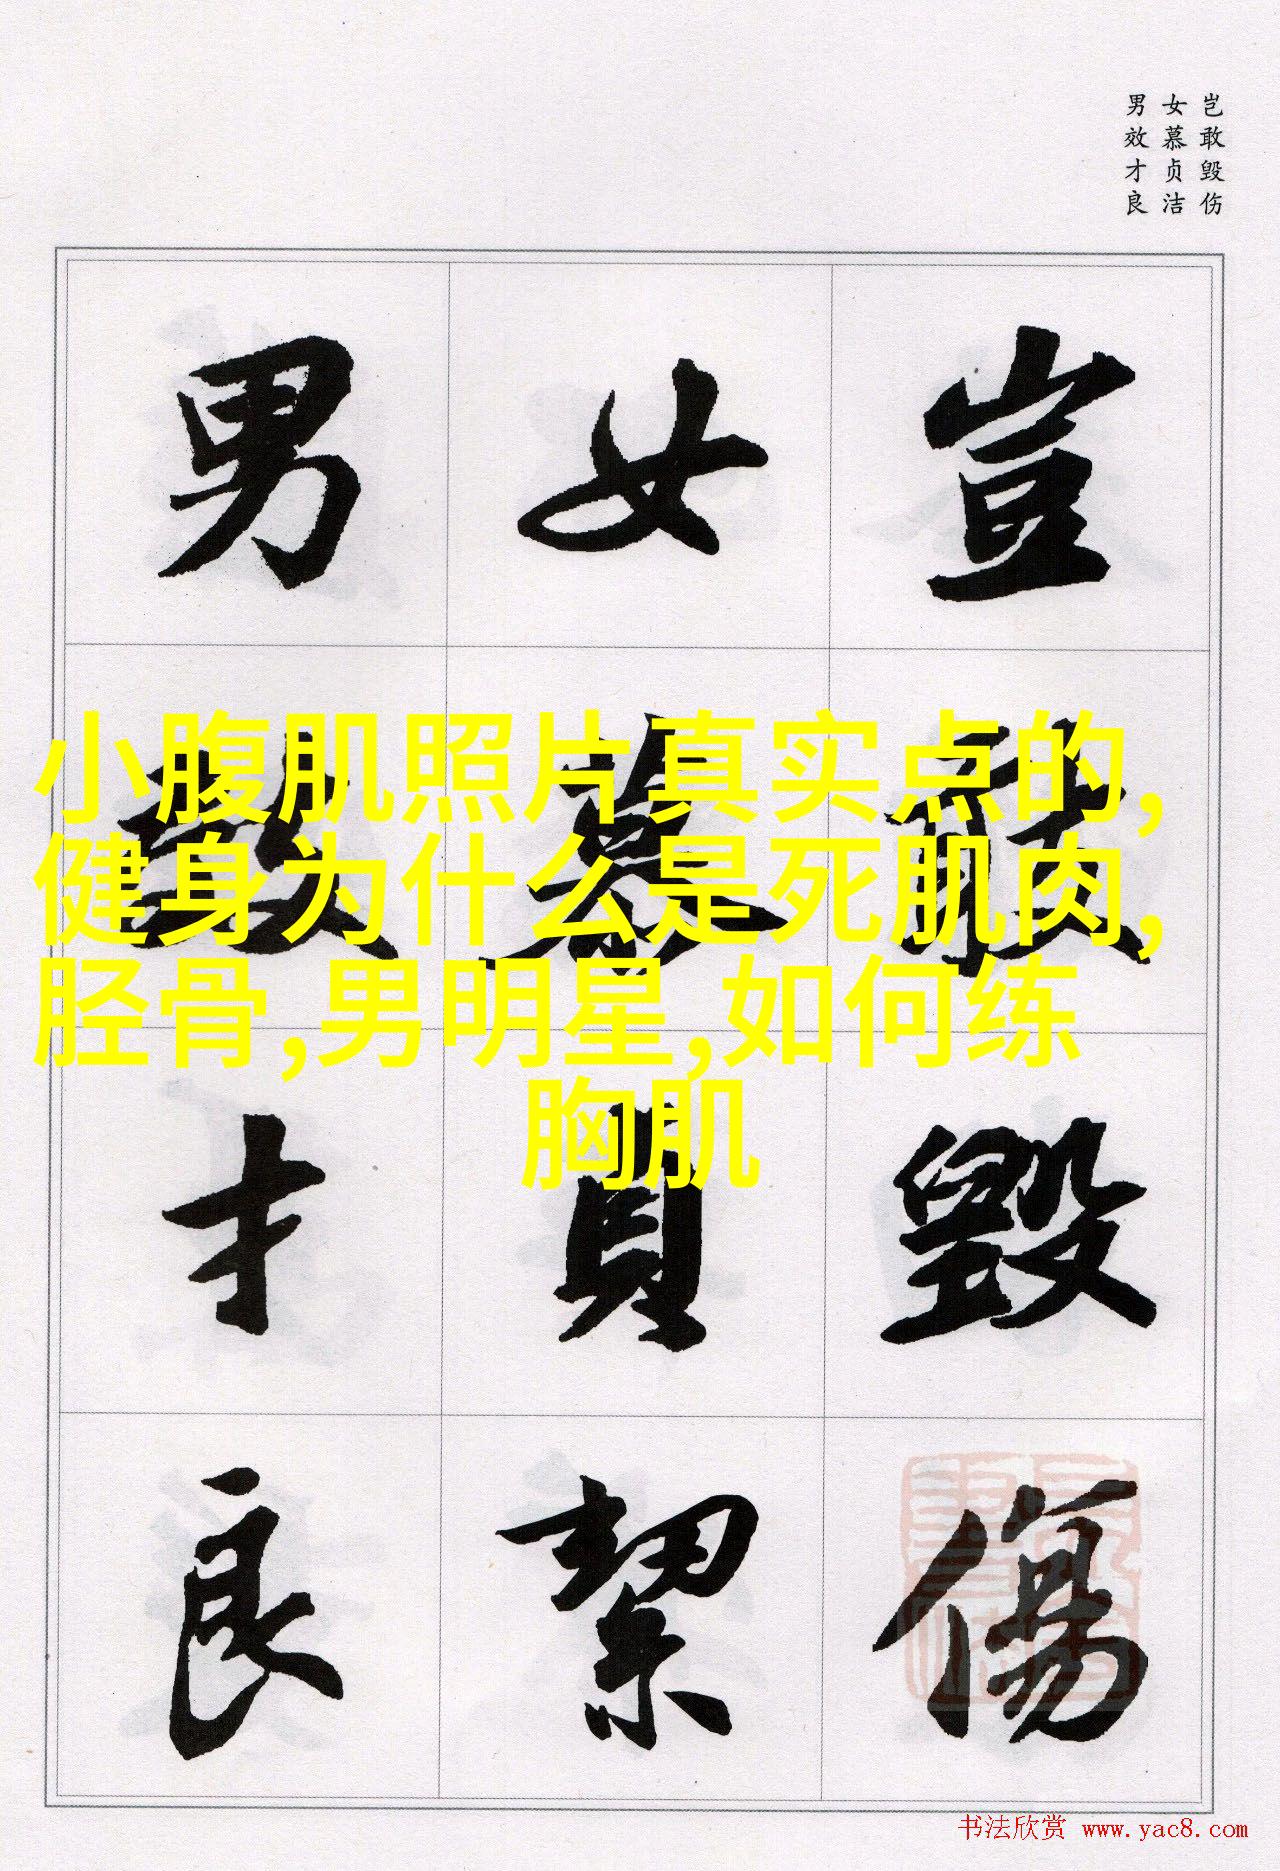 岂敢毁伤
女慕贞洁
男效才良
豈敢毀傷
女慕貞絜
男效才良
小腹肌照片真实点的,
健身为什么是死肌肉,
胫骨,男明星,如何练
胸肌
书法欣赏 www.yac8.com